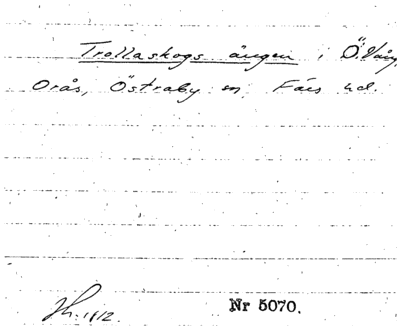 Trollaskogs ängen i Ö. Väng,
Orås, Östraby sn, Färs hd.
Nr 5070.